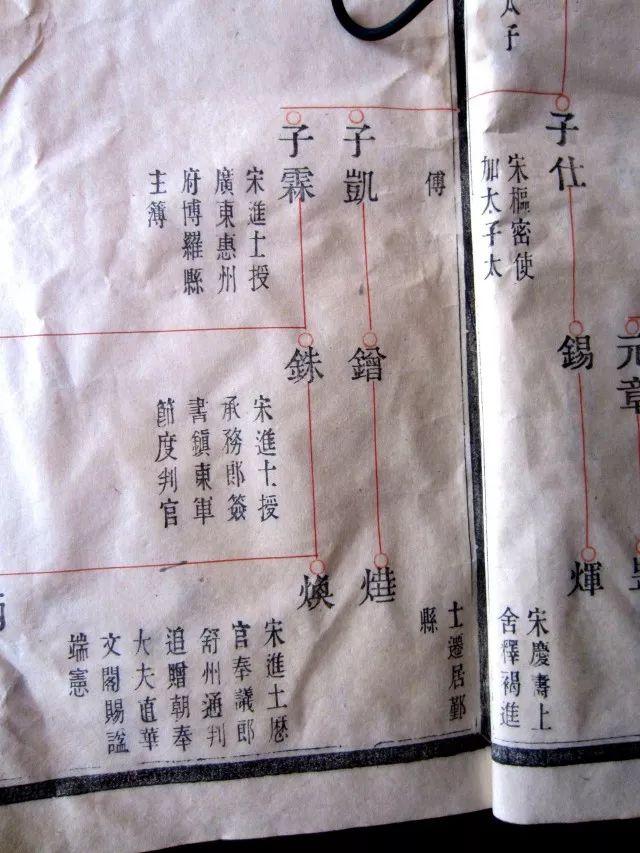 太子
子仕
宋樞密使
加太子太
元章
錫
輝
宋慶壽上
舍釋褐進
傅
子凱
子霖
宋進士授
廣東惠州
府博羅縣
主簿
鏳
銖
宋進士授
承務郎簽
書鎮東軍
節度判官
煥
士遷居鄞
縣
宋進士歷
官奉議郎
舒州通判
追贈朝奉
大夫直華
文閣賜諡
端憲